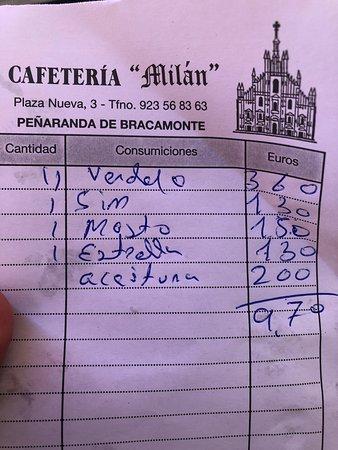 CAFETERÍA "Milán"
Plaza Nueva, 3 - Tfno. 923 56 83 63
PEÑARANDA DE BRACAMONTE
Cantidad Consumiciones Euros
11 Verdejo 360
1 Sin 130
1 Mosto 150
1 Estrella 130
aceituna 200
9,70